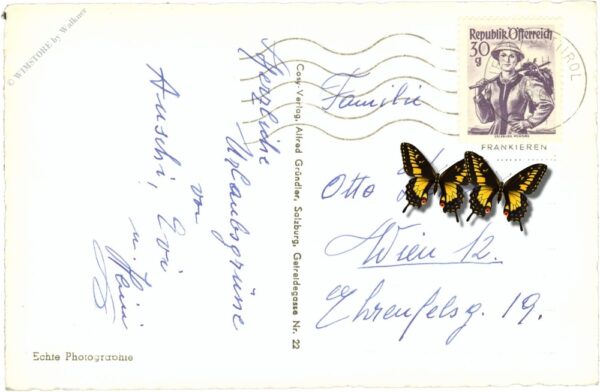 © WIMSTORE by Walkner
Herzliche
Urlaubsgrüsse
von
Anschi, Evi
u. Heini
Echte Photographie
Cosy-Verlag, Alfred Gründler, Salzburg, Getreidegasse Nr. 22
Republik Österreich
30
g
TIROL
FRANKIEREN
Familie
Otto
Wien 12.
Ehrenfelsg. 19.